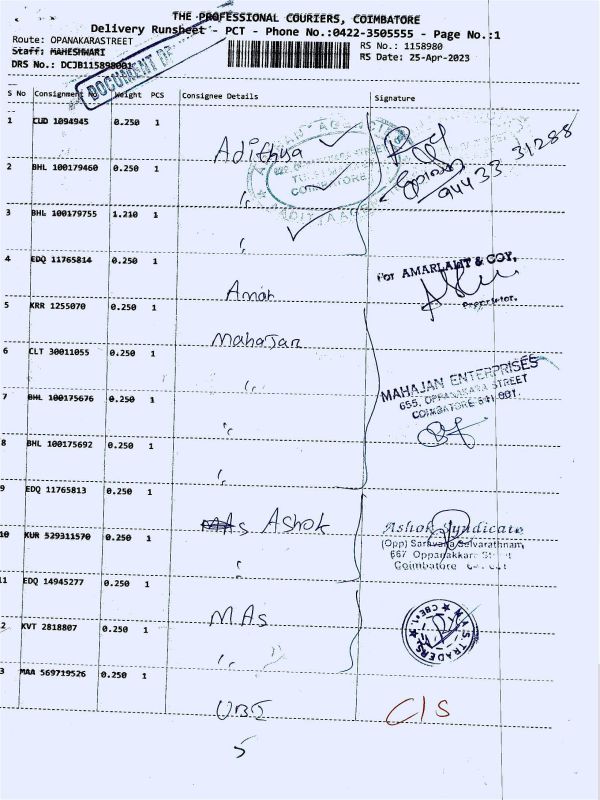 THE PROFESSIONAL COURIERS, COIMBATORE
Delivery Runsheet - PCT - Phone No.:0422-3505555 - Page No.:1
Route: OPANAKARASTREET
RS No.: 1158980
Staff: MAHESHWARI
RS Date: 25-Apr-2023
DRS No.: DCJB115898001
DOCUMENT
S No Consignment No Weight PCS Consignee Details Signature
1 CUD 1094945 0.250 1 Adithya
COIMBATORE
94433 31288
2 BHL 100179460 0.250 1 "
3 BHL 100179755 1.210 1 "
4 EDQ 11765814 0.250 1 Amar
For AMARLALIT & COY,
Proprietor.
5 KRR 1255070 0.250 1 Mahajan
6 CLT 30011055 0.250 1 "
MAHAJAN ENTERPRISES
655, OPPANAKARA STREET
COIMBATORE 641 001.
7 BHL 100175676 0.250 1 "
8 BHL 100175692 0.250 1 "
9 EDQ 11765813 0.250 1 Ashok
Ashok Syndicate
(Opp) Saravana Selvarathnam,
667 Oppanakkara Street
Coimbatore
10 KUR 529311570 0.250 1 "
11 EDQ 14945277 0.250 1 M.As
M.A.S. TRADERS
CBE-1.
2 KVT 2818807 0.250 1 "
3 MAA 569719526 0.250 1 UBI
C/S
5